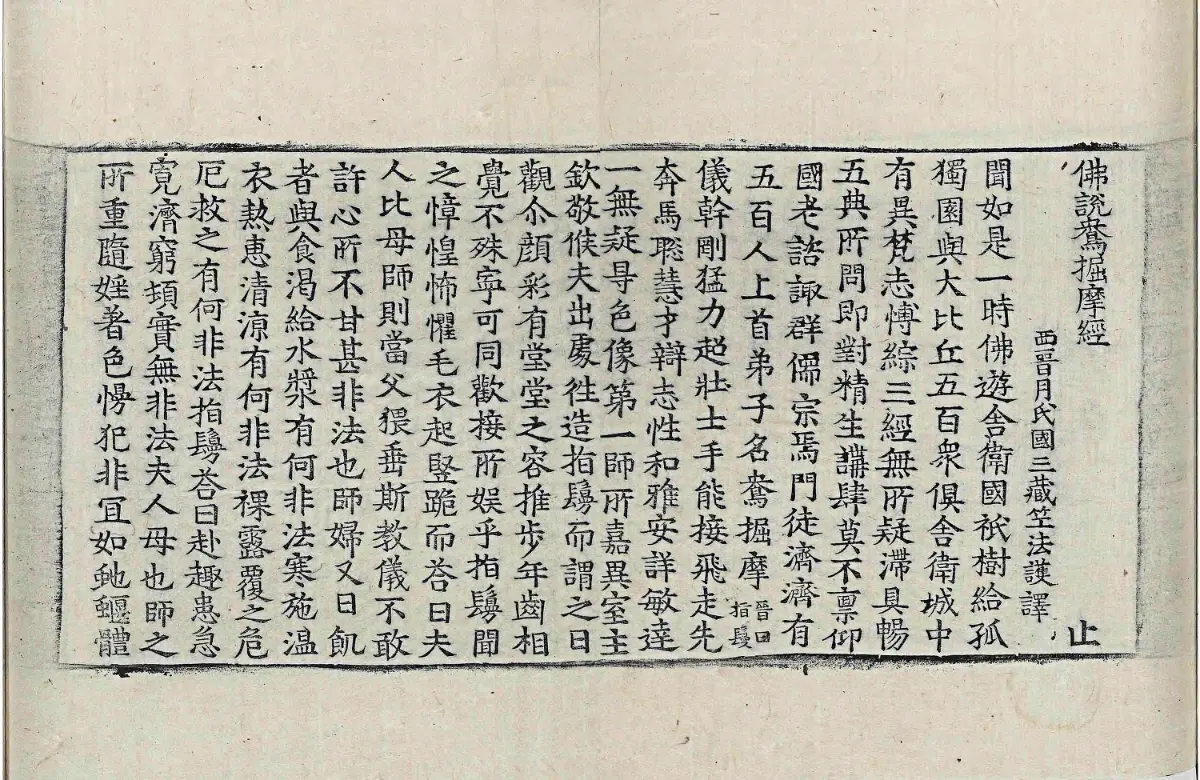 佛說鴦掘摩經　止
西晉月氏國三藏竺法護譯
聞如是一時佛遊舍衛國祇樹給孤
獨園與大比丘五百衆俱舍衛城中
有異梵志愽綜三經無所疑滯具暢
五典所問即對精生講肆莫不禀仰
國老諮諏群儒宗焉門徒濟濟有
五百人上首弟子名鴦掘摩晉曰指鬘
儀幹剛猛力超壯士手能接飛走先
奔馬聦慧才辯志性和雅安詳敏達
一無疑㝵色像第一師所嘉異室主
欽敬候夫出處徃造指鬘而謂之曰
觀尒顔彩有堂堂之容推步年齒相
覺不殊寧可同歡接所娛乎指鬘聞
之慞惶怖懼毛衣起竪跪而荅曰夫
人比母師則當父猥垂斯教儀不敢
許心所不甘甚非法也師婦又曰飢
者與食渴給水漿有何非法寒施温
衣熱惠清凉有何非法裸露覆之危
厄救之有何非法指鬘荅曰赴趣患急
寬濟窮頓實無非法夫人母也師之
所重隨婬著色慢犯非冝如虵蝘體